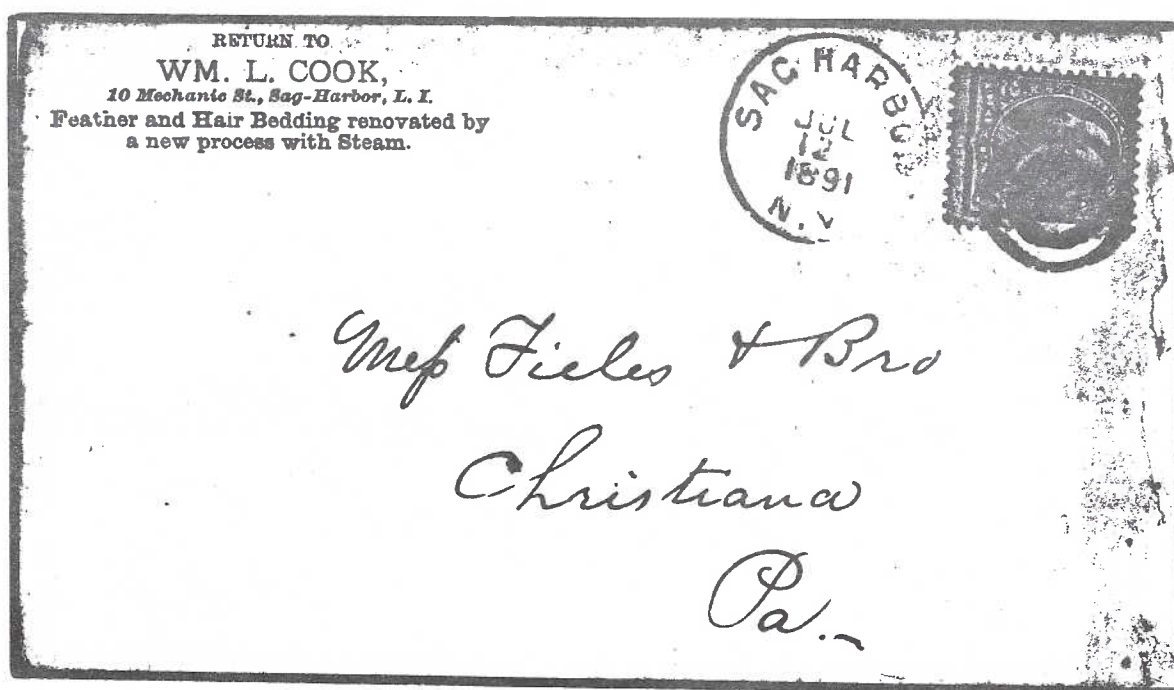 RETURN TO
WM. L. COOK,
10 Mechanic St., Sag-Harbor, L. I.
Feather and Hair Bedding renovated by
a new process with Steam.
SAG HARBO
JUL
12
1891
N.Y
Mess Fieles & Bro
Christiana
Pa.